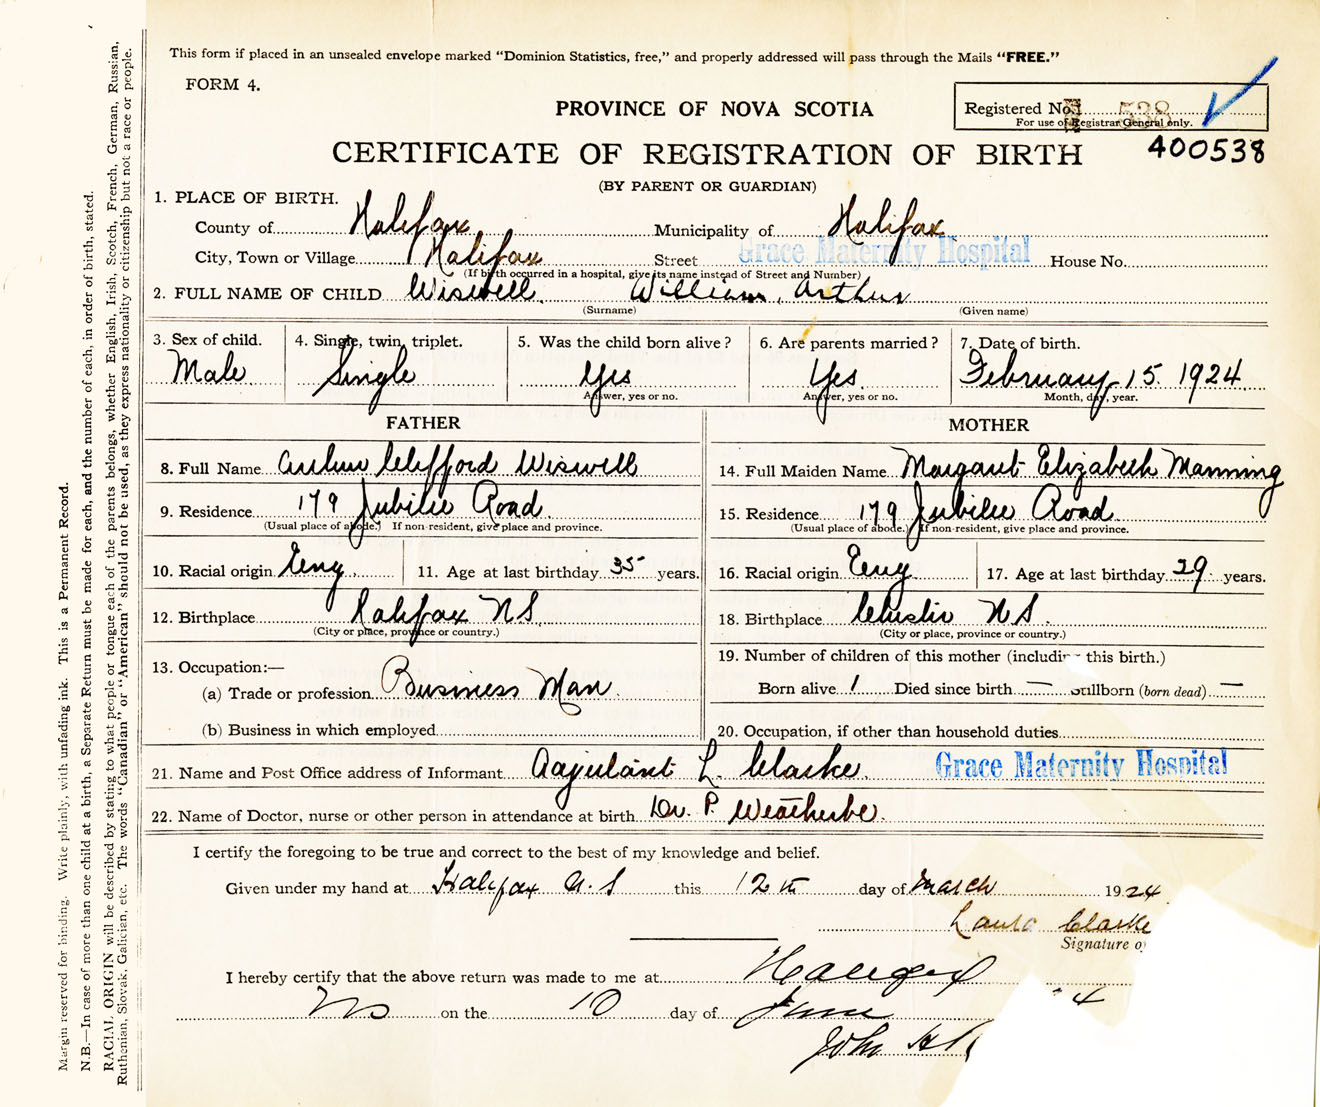 This form if placed in an unsealed envelope marked "Dominion Statistics, free," and properly addressed will pass through the Mails "FREE."
FORM 4.
PROVINCE OF NOVA SCOTIA
Registered No. 538
For use of Registrar General only.
400538
CERTIFICATE OF REGISTRATION OF BIRTH
(BY PARENT OR GUARDIAN)
1. PLACE OF BIRTH.
County of Halifax Municipality of Halifax
City, Town or Village Halifax Street Grace Maternity Hospital House No.
(If birth occurred in a hospital, give its name instead of Street and Number)
2. FULL NAME OF CHILD Wiswell, William, Arthur
(Surname) (Given name)
3. Sex of child. 4. Single, twin, triplet. 5. Was the child born alive? 6. Are parents married? 7. Date of birth.
Male Single Yes Yes February 15. 1924
Answer, yes or no. Answer, yes or no. Month, day, year.
FATHER MOTHER
8. Full Name Arthur Clifford Wiswell 14. Full Maiden Name Margaret Elizabeth Manning
9. Residence 179 Jubilee Road 15. Residence 179 Jubilee Road
(Usual place of abode.) If non-resident, give place and province. (Usual place of abode.) If non-resident, give place and province.
10. Racial origin Eng. 11. Age at last birthday 35 years. 16. Racial origin Eng 17. Age at last birthday 29 years.
12. Birthplace Halifax N S. 18. Birthplace Chester N S.
(City or place, province or country.) (City or place, province or country.)
13. Occupation:— 19. Number of children of this mother (including this birth.)
(a) Trade or profession Business Man. Born alive 1 Died since birth — Stillborn (born dead) —
(b) Business in which employed 20. Occupation, if other than household duties
21. Name and Post Office address of Informant Adjutant L. Clarke. Grace Maternity Hospital
22. Name of Doctor, nurse or other person in attendance at birth Dr. P. Weatherbe.
I certify the foregoing to be true and correct to the best of my knowledge and belief.
Given under my hand at Halifax N.S this 12th day of March 1924
Laura Clarke
Signature o
I hereby certify that the above return was made to me at Halifax
NS on the 10 day of June 4
John H
Margin reserved for binding. Write plainly, with unfading ink. This is a Permanent Record.
N.B.—In case of more than one child at a birth, a Separate Return must be made for each, and the number of each, in order of birth, stated.
RACIAL ORIGIN will be described by stating to what people or tongue each of the parents belongs, whether English, Irish, Scotch, French, German, Russian,
Ruthenian, Slovak, Galician, etc. The words "Canadian" or "American" should not be used, as they express nationality or citizenship but not a race or people.